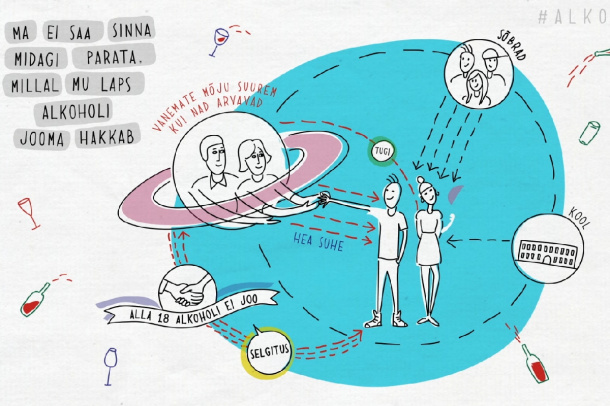 MA EI SAA SINNA
MIDAGI PARATA,
MILLAL MU LAPS
ALKOHOLI
JOOMA HAKKAB
#ALKO
SÕBRAD
VANEMATE MÕJU SUUREM
KUI NAD ARVAVAD
TUGI
HEA SUHE
KOOL
ALLA 18 ALKOHOLI EI JOO
SELGITUS